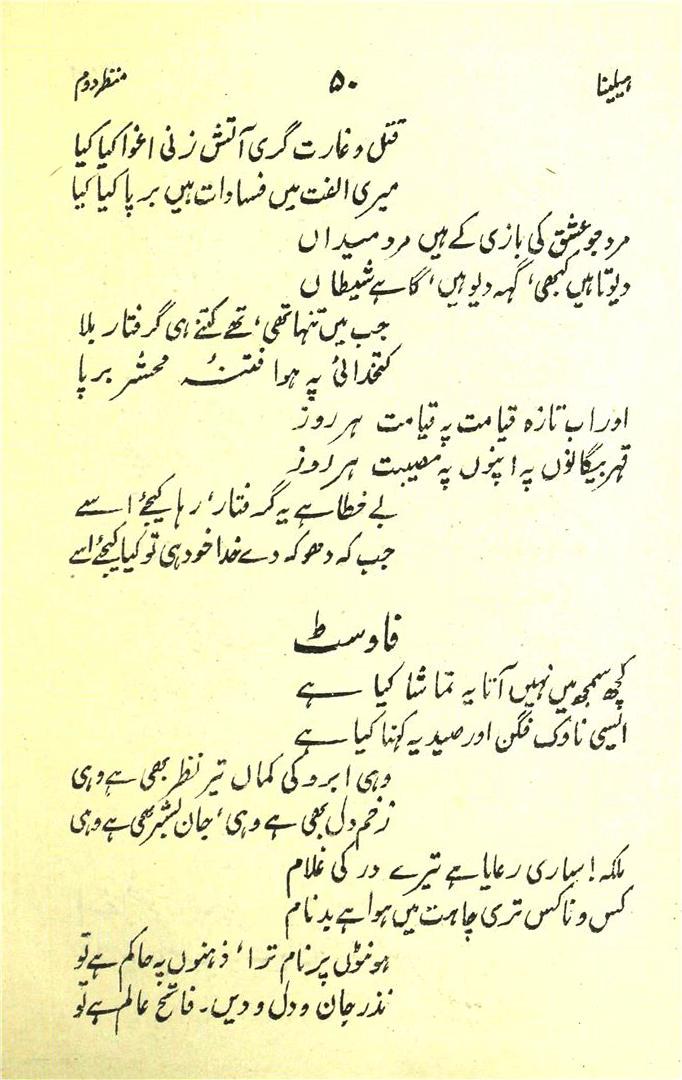 ہیلینا ۵۰ منظر دوم
قتل و غارت گری آتش زنی اغوا کیا کیا
میری الفت میں فسادات ہیں برپا کیا کیا
مرد جو عشق کی بازی کے ہیں مرد میداں
دیوتا ہیں کبھی، گہہ دیو ہیں، گاہے شیطاں
جب میں تنہا تھی، تھے کتنے ہی گرفتار بلا
کتخدائی پہ ہوا فتنۂ محشر برپا
اور اب تازہ قیامت پہ قیامت ہر روز
قہر بیگانوں پہ اپنوں پہ مصیبت ہر روز
بے خطا ہے یہ گرفتار، رہا کیجئے اسے
جب کہ دھوکہ دے خدا خود ہی تو کیا کیجئے اسے
فاوسٹ
کچھ سمجھ میں نہیں آتا یہ تماشا کیا ہے
ایسی ناوک فگن اور صید یہ کہنا کیا ہے
وہی ابرو کی کماں تیر نظر بھی ہے وہی
زخم دل بھی ہے وہی، جان بشر بھی ہے وہی
ملکہ! ساری رعایا ہے تیرے در کی غلام
کس و ناکس تری چاہت میں ہوا ہے بدنام
ہونٹوں پر نام ترا، ذہنوں پہ حاکم ہے تو
نذر جان و دل و دیں۔ فاتح عالم ہے تو